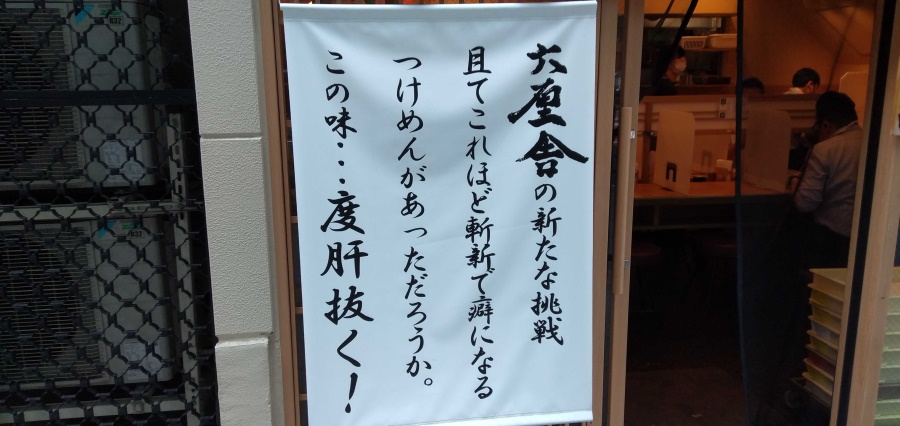 六厘舎の新たな挑戦
且てこれほど斬新で癖になる
つけめんがあっただろうか。
この味・・・度肝抜く！
R32